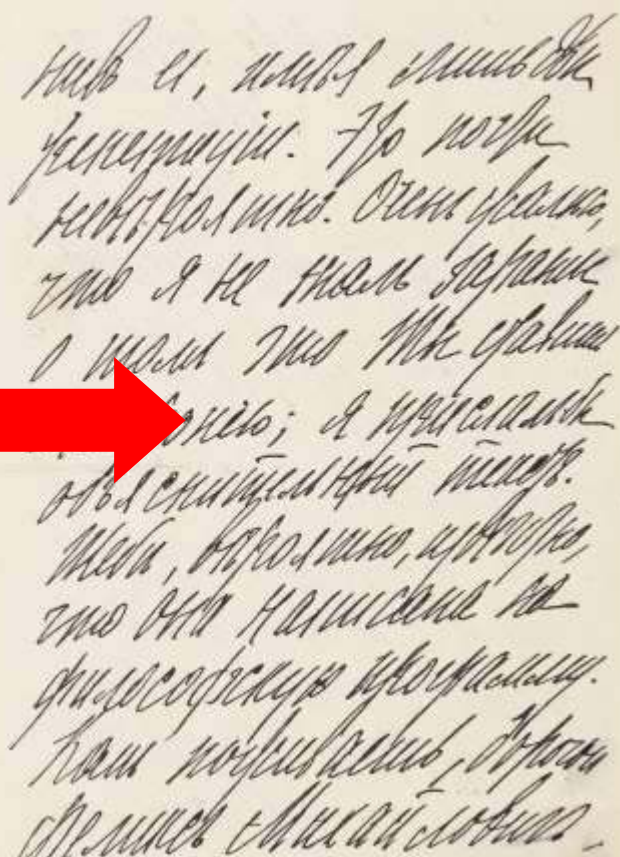 нивъ ея, имѣя лишь двѣ
репетиціи. Это почти
невѣроятно. Очень жалко,
что я не зналъ заранѣе
о томъ что Ты ставишь
я прислалъ бы
объяснительный текстъ.
Тебѣ, вѣроятно, извѣстно,
что она написана на
философскую программу.
Какъ поживаешь, дорогой
Михайловичъ